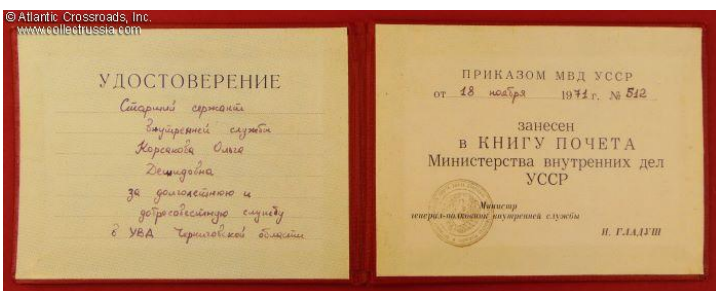 © Atlantic Crossroads, Inc.
www.collectrussia.com
УДОСТОВЕРЕНИЕ
Старший сержант
внутренней службы
Корсакова Ольга
Демидовна
за долголетнюю и
добросовестную службу
в УВД Черниговской области
ПРИКАЗОМ МВД УССР
от 18 ноября 1971 г. № 512
занесен
в КНИГУ ПОЧЕТА
Министерства внутренних дел
УССР
Министр
генерал-полковник внутренней службы
И. ГЛАДУШ